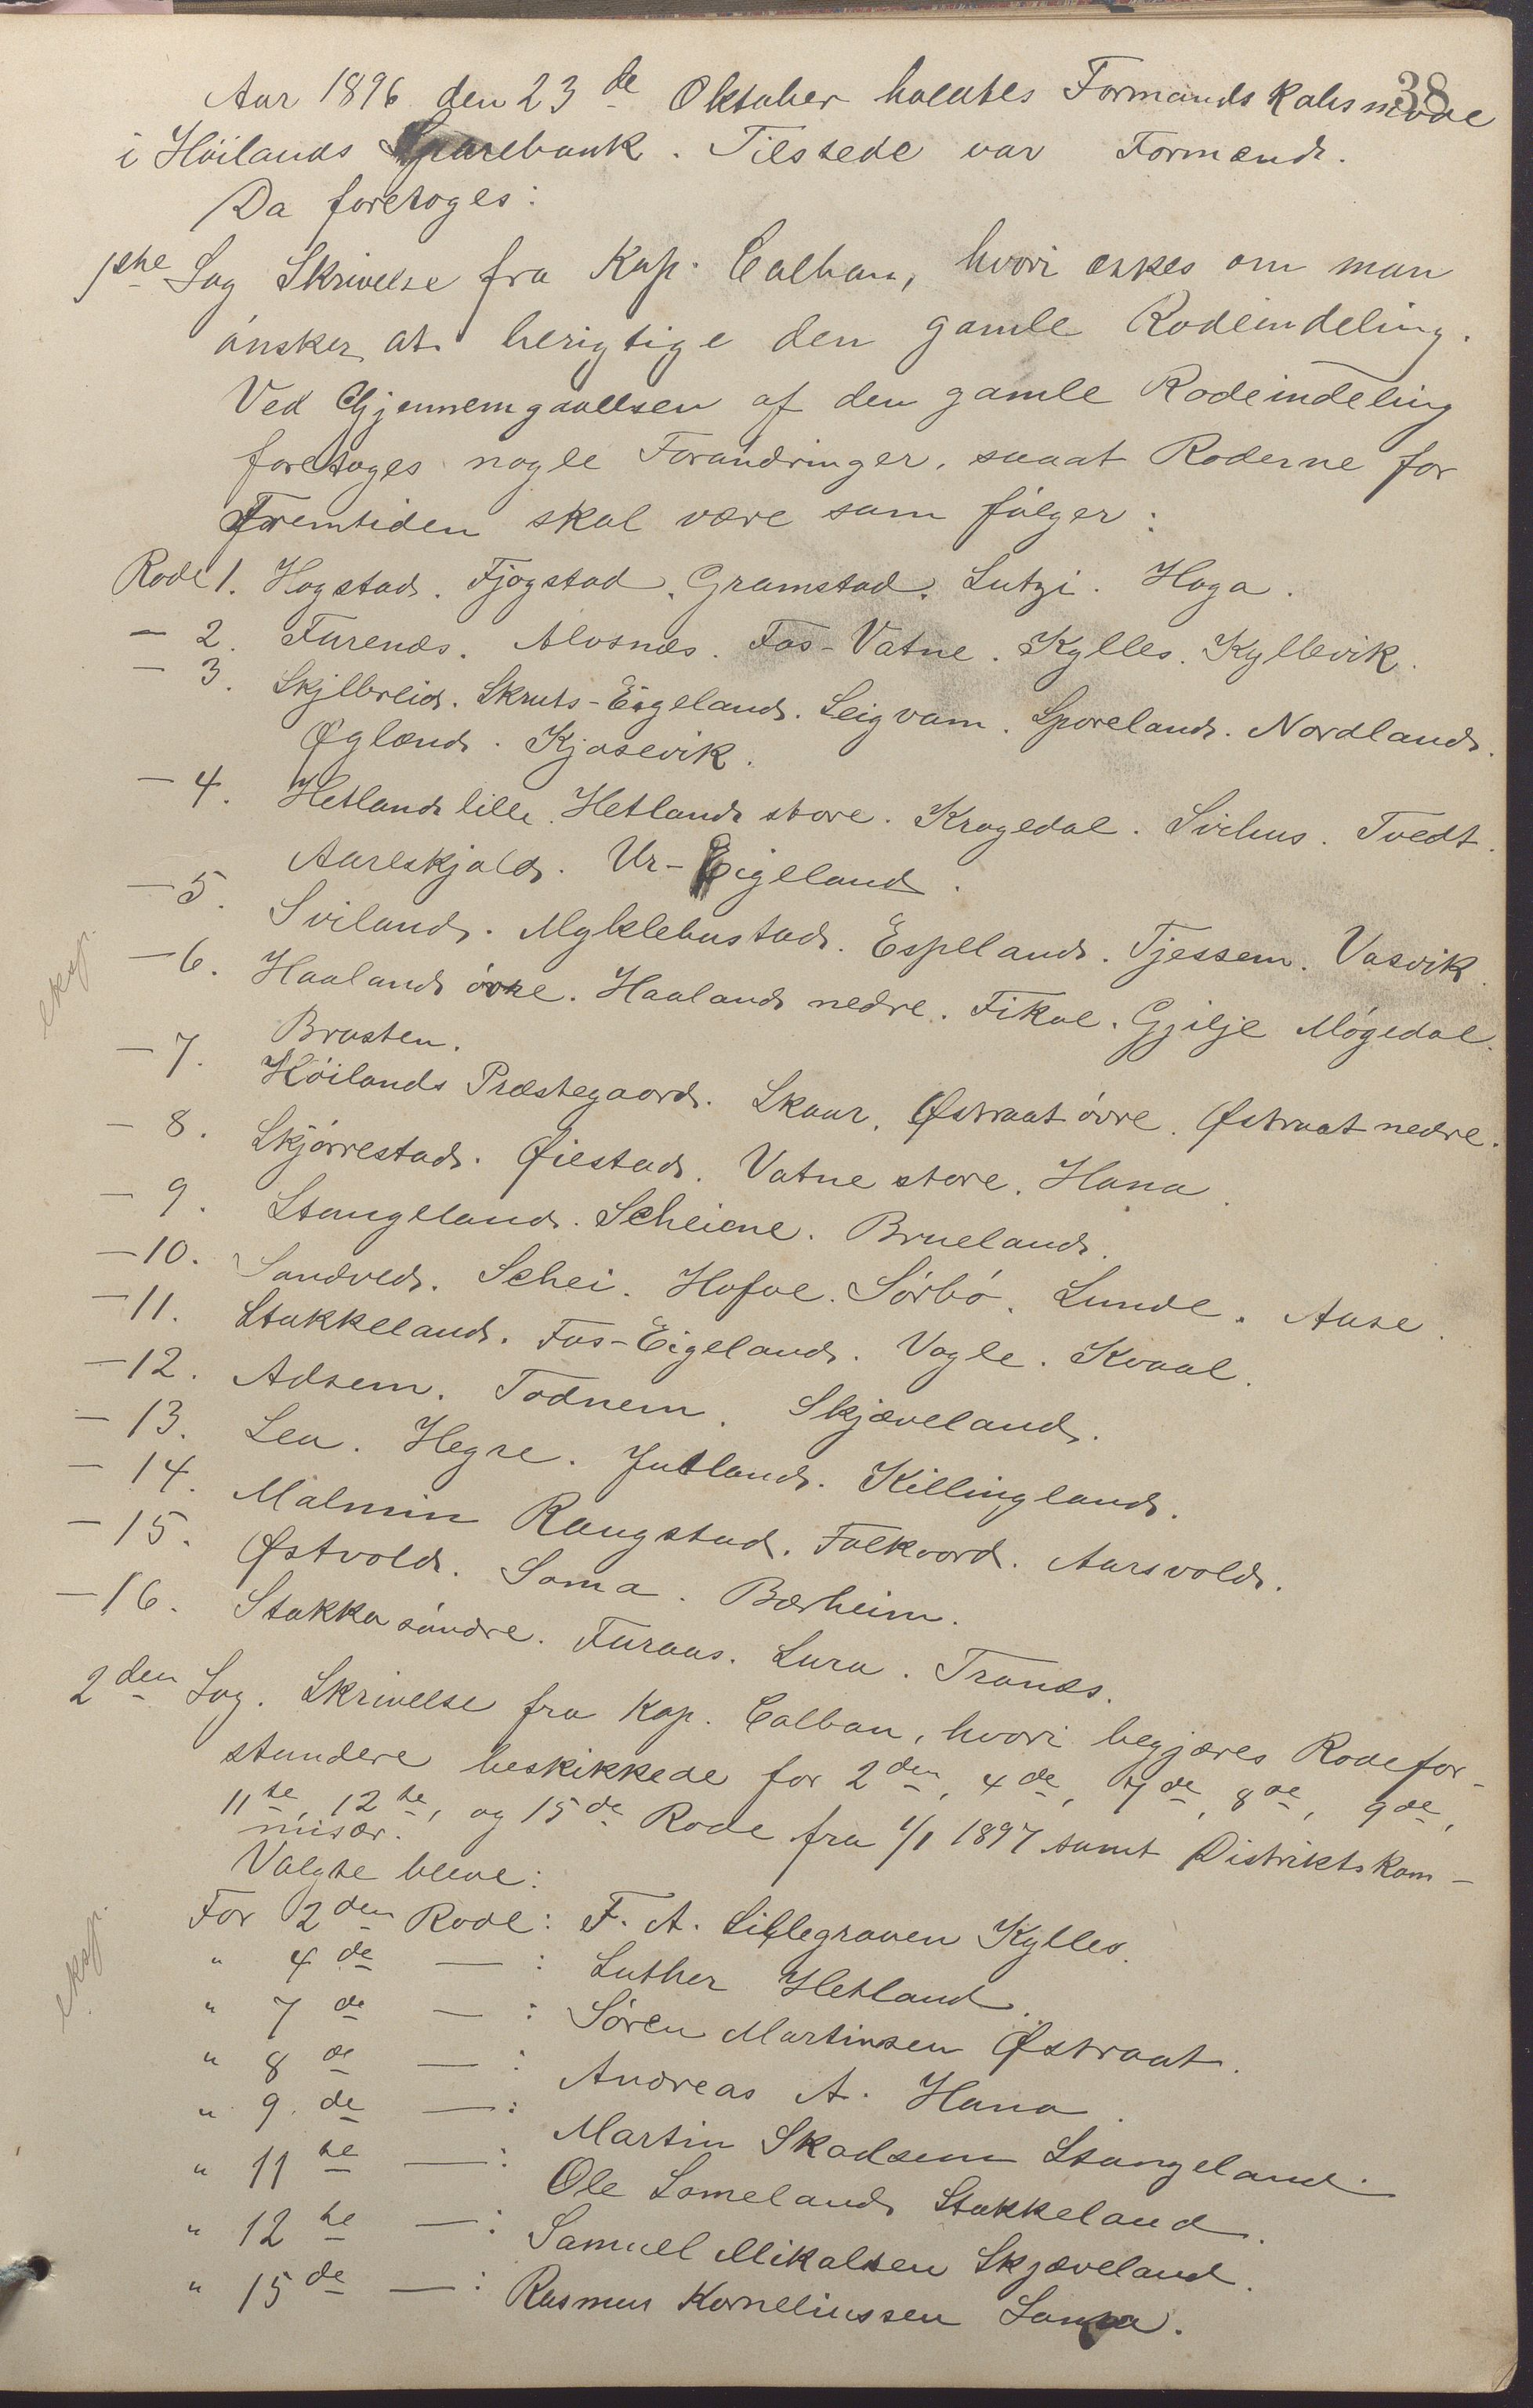 38
Aar 1896 den 23de Oktober holdtes Formandskabsmøde
i Höilands Sparebank. Tilstede var Formænd.
Da foretoges:
1ste Sag Skrivelse fra Kap. Calban, hvori æskes om man
önsker at berigtige den gamle Rodeindeling.
Ved Gjennemgaaelsen af den gamle Rodeindeling
foretoges nogle Forandringer, saaat Roderne for
Fremtiden skal være som fölger:
Rode 1. Hogstad. Fjogstad. Gramstad. Lutzi. Hoga.
— 2. Furenæs. Alvsnæs. Fos-Vatne. Kylles. Kyllesvik.
— 3. Skjlbreid. Skruds-Eigeland. Leigvam. Sporeland. Nordland.
Øglænd. Kjosevik.
— 4. Hetland lille. Hetland store. Kragedal. Svihus. Tvedt.
Aareskjold. Ur-Eigeland.
— 5. Sviland. Myklebustad. Espeland. Tjessem. Vasvik.
— 6. Haaland övre. Haaland nedre. Fikal. Gjilje Mögedal.
Brasten.
— 7. Höilands Præstegaard. Skaar. Østraat övre. Østraat nedre.
— 8. Skjörrestad. Øiestad. Vatne store. Hana.
— 9. Stangeland. Scheiene. Brueland.
— 10. Sandved. Schei. Hofve. Sörbö. Lunde. Aase.
— 11. Stokkeland. Fos-Eigeland. Vagle. Kvaal.
— 12. Adsem. Todnem. Skjæveland.
— 13. Lea. Hegre. Jutland. Killingland.
— 14. Malmin Raugstad. Folkvord. Aarsvold.
— 15. Østvold. Soma. Bærheim.
— 16. Stokka söndre. Furaas. Lura. Tronæs.
2den Sag. Skrivelse fra Kap. Calban, hvori begjæres Rodefor-
standere beskikkede for 2den, 4de, 7de, 8de, 9de,
11te, 12te, og 15de Rode fra 1/1 1897 samt Distriktskom-
misær.
Valgte bleve:
For 2den Rode: F. A. Lillegraven Kylles.
" 4de — : Luther Hetland.
" 7de — : Sören Martinsen Østraat.
" 8de — : Andreas A. Hana.
" 9de — : Martin Skadsem Stangeland.
" 11te — : Ole Lomeland Stokkeland.
" 12te — : Samuel Mikalsen Skjæveland.
" 15de — : Rasmus Korneliussen Soma.
eksp.
eksp.